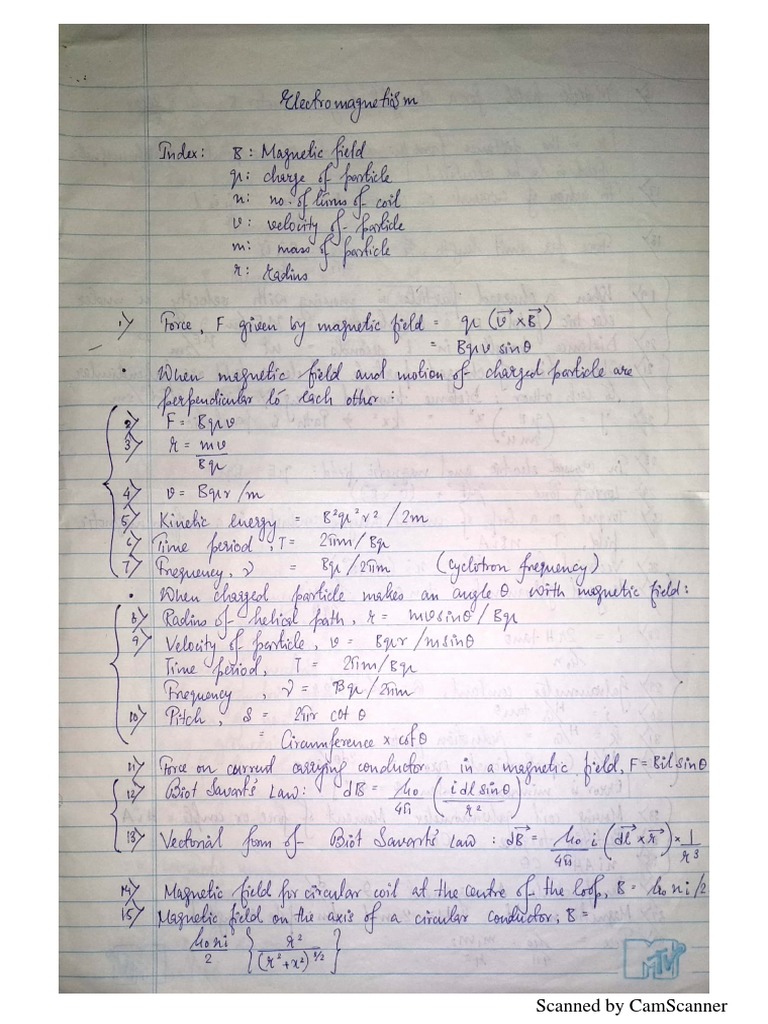 Electromagnetism
Index: B: Magnetic field
q: charge of particle
n: no. of turns of coil
v: velocity of particle
m: mass of particle
r: radius
1) Force, F given by magnetic field = q (v⃗ × B⃗)
= Bqv sinθ
• When magnetic field and motion of charged particle are
perpendicular to each other:
2) F = Bqv
3) r = mv/Bq
4) v = Bqr/m
5) Kinetic energy = B²q²r²/2m
6) Time period, T = 2πm/Bq
7) Frequency, ν = Bq/2πm (cyclotron frequency)
• When charged particle makes an angle θ with magnetic field:
8) Radius of helical path, r = mv sinθ/Bq
9) Velocity of particle, v = Bqr/m sinθ
Time period, T = 2πm/Bq
Frequency, ν = Bq/2πm
10) Pitch, S = 2πr cot θ
= Circumference × cot θ
11) Force on current carrying conductor in a magnetic field, F = Bil sinθ
12) Biot Savart's Law: dB = μ0/4π (idl sinθ/r²)
13) Vectorial form of Biot Savart's Law: dB⃗ = μ0/4π i (dl⃗ × r⃗) × 1/r³
14) Magnetic field for circular coil at the centre of the loop, B = μ0ni/2
15) Magnetic field on the axis of a circular conductor, B =
μ0ni/2 {r²/(r²+x²)^3/2}
MTV
Scanned by CamScanner